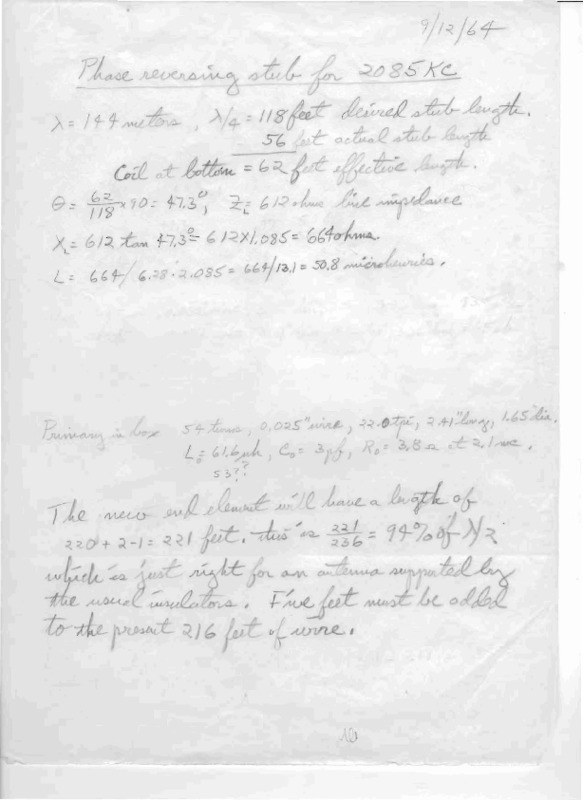 9/12/64
Phase reversing stub for 2085 KC
λ = 144 meters, λ/4 = 118 feet desired stub length.
56 feet actual stub length
Coil at bottom = 62 feet effective length.
θ = 62/118 × 90 = 47.3°, Z_L = 612 ohms line impedance
X_L = 612 tan 47.3° = 612 × 1.085 = 664 ohms.
L = 664/6.28·2.085 = 664/13.1 = 50.8 microhenries.
Primary in box 54 turns, 0.025" wire, 22.0 tpi, 2.41" long, 1.65" dia.
L₀ = 61.6 μh, C₀ = 3 pf, R₀ = 3.8 Ω at 2.1 mc.
53??
The new end element will have a length of
220 + 2 - 1 = 221 feet. this is 221/236 = 94% of λ/2
which is just right for an antenna supported by
the usual insulators. Five feet must be added
to the present 216 feet of wire.